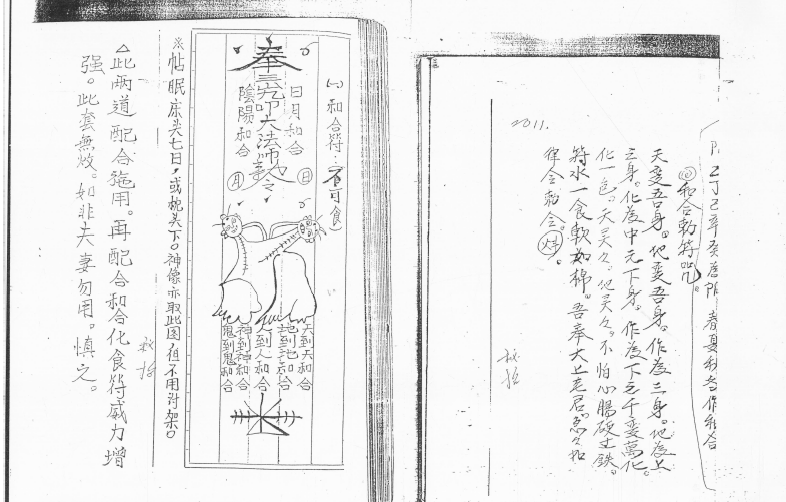 春夏秋冬作和合
和合勅符咒。
天变吾身。地变吾身。作為三身。地為上
三身。化為中元下身。作為下元千变萬化。
化一色。天灵々。地灵々。不怕心腸硬过鉄。
符水一食軟如棉。吾奉太上老君。急々如
律令勅令
2011.
(1)和合符:(不可食)
日月和合
奉三元叩大法師勅令
陰陽和合
日
月
天到天和合
地到地和合
人到人和合
神到神和合
鬼到鬼和合
※帖眠床头七日,或枕头下。神像亦取此图,但不用对架。
△此两道配合施用。再配合和合化食符威力增
强。此套無效。如非夫妻勿用。慎之。